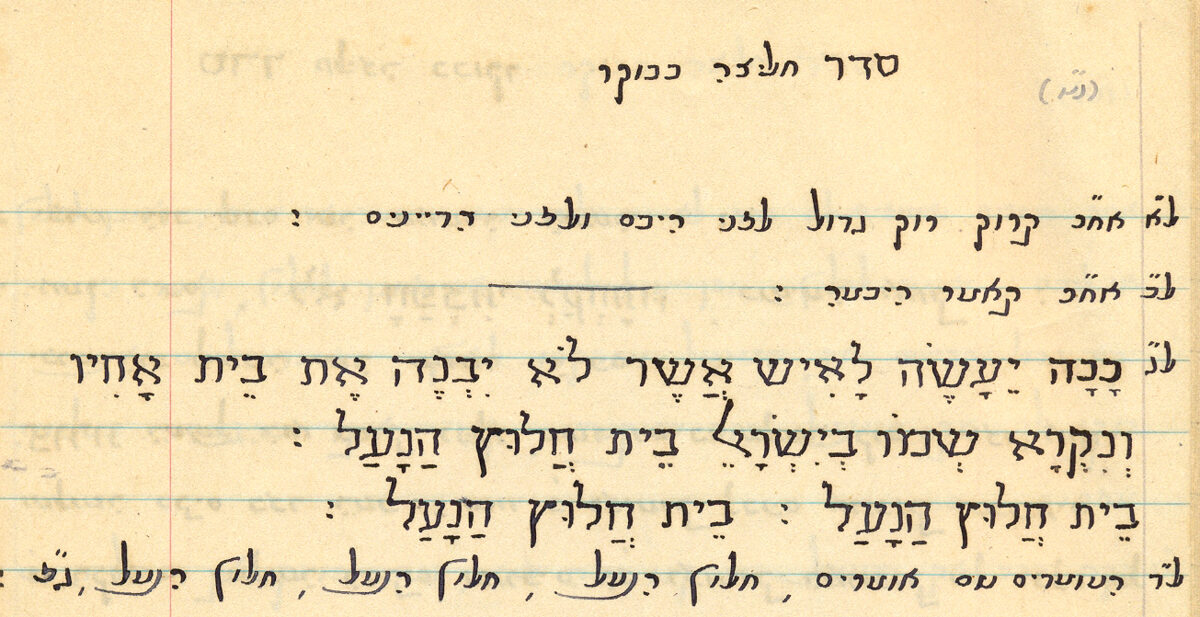 סדר חליצה בבוקר
ל״א אח״כ תרוק רוק גדול לפני היבם ולפני הדיינים :
ל״ב אח״כ תאמר היבמה :
ל״ג כָּכָה יֵעָשֶׂה לָאִישׁ אֲשֶׁר לֹא יִבְנֶה אֶת בֵּית אָחִיו
וְנִקְרָא שְׁמוֹ בְּיִשְׂרָאֵל בֵּית חֲלוּץ הַנָּעַל :
בֵּית חֲלוּץ הַנָּעַל : בֵּית חֲלוּץ הַנָּעַל :
ל״ד העומדים שם אומרים, חלוץ הנעל, חלוץ הנעל, חלוץ הנעל, ג״פ :